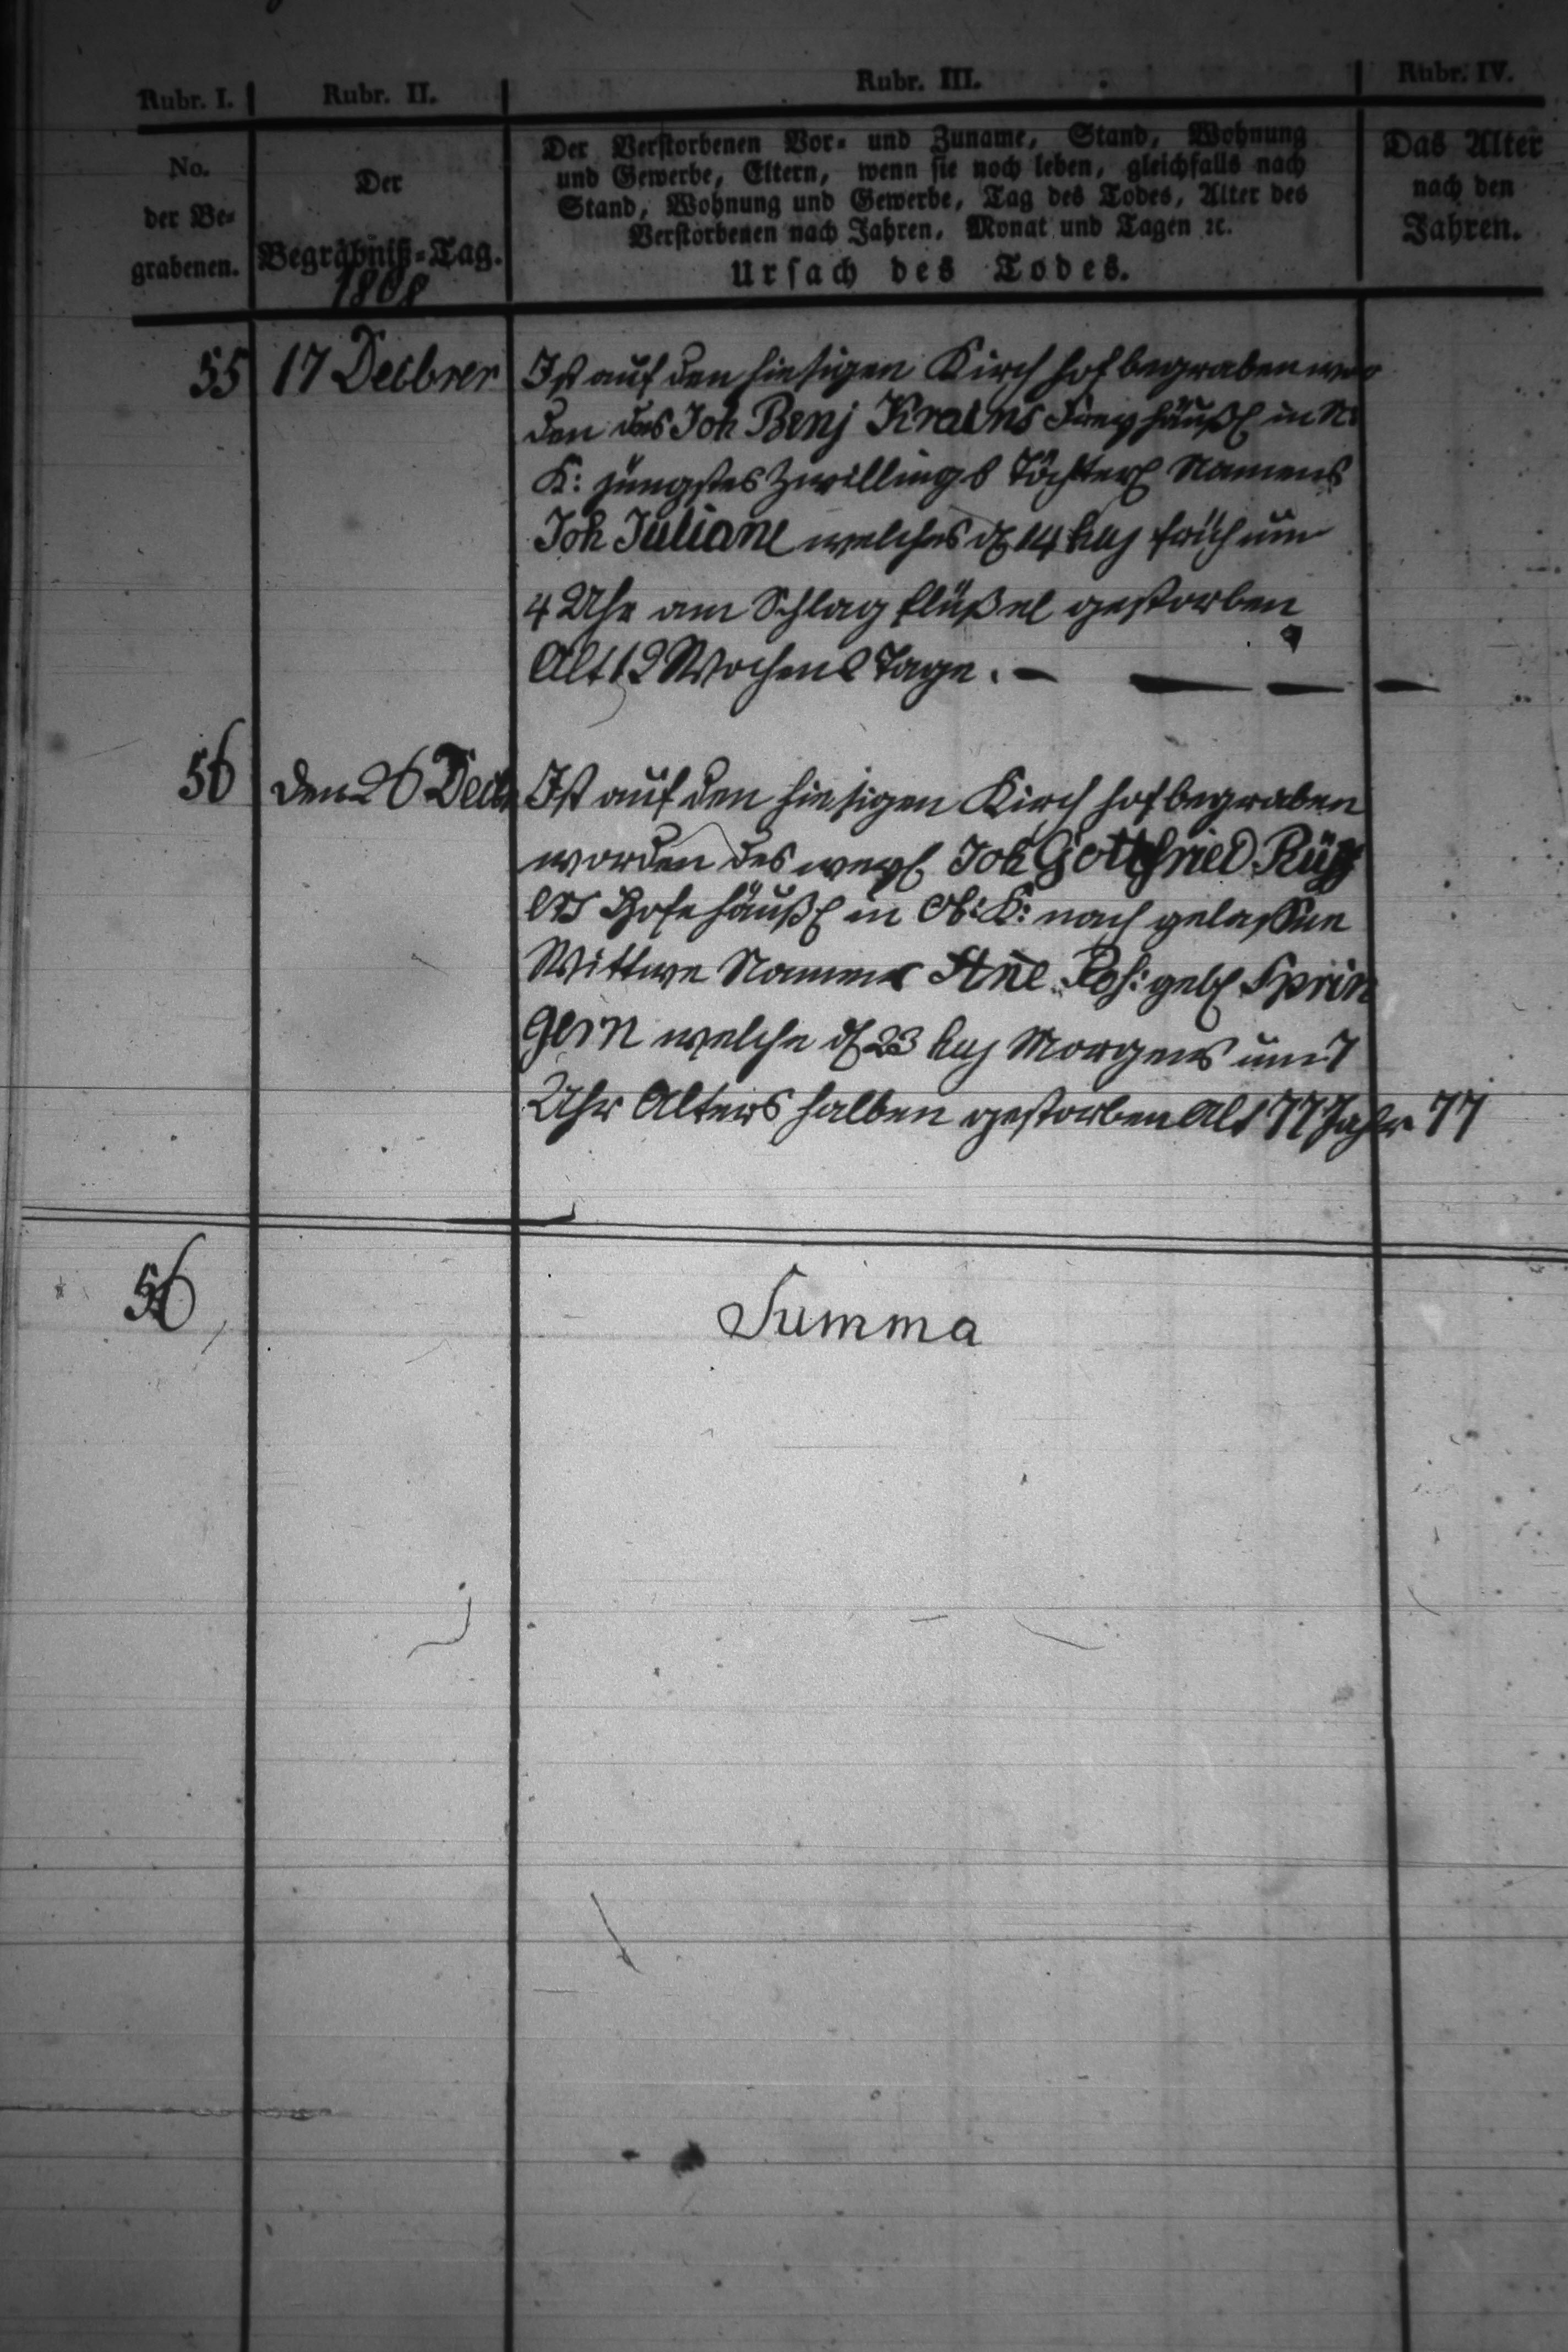 Rubr. I. Rubr. II. Rubr. III. Rubr. IV.
No.
der Be-
grabenen.
Der
Begräbniß-Tag.
1808
Der Verstorbenen Vor- und Zuname, Stand, Wohnung
und Gewerbe, Eltern, wenn sie noch leben, gleichfalls nach
Stand, Wohnung und Gewerbe, Tag des Todes, Alter des
Verstorbenen nach Jahren, Monat und Tagen ꝛc.
Ursach des Todes.
Das Alter
nach den
Jahren.
55 17 Decbrer Ist auf den hiesigen Kirch hof begraben wor
den des Joh Benj Krams Freyhäußl in N:
K: jüngstes Zwillings Töchterl Namens
Joh Juliane welches d 14 huj früh um
4 Uhr am Schlag flüßel gestorben
Alt 12 Wochen 2 Tage. — — — —
56 den 26 Decb Ist auf den hiesigen Kirch hof begraben
worden des weyl Joh Gottfried
Hofehäußl in Ob: K: nach gelaßne
Wittwe Namens Ane Ros: geb Sprin
gern welche d 23 huj Morgens um 7
Uhr Alters halben gestorben Alt 77 Jahr 77
56 Summa